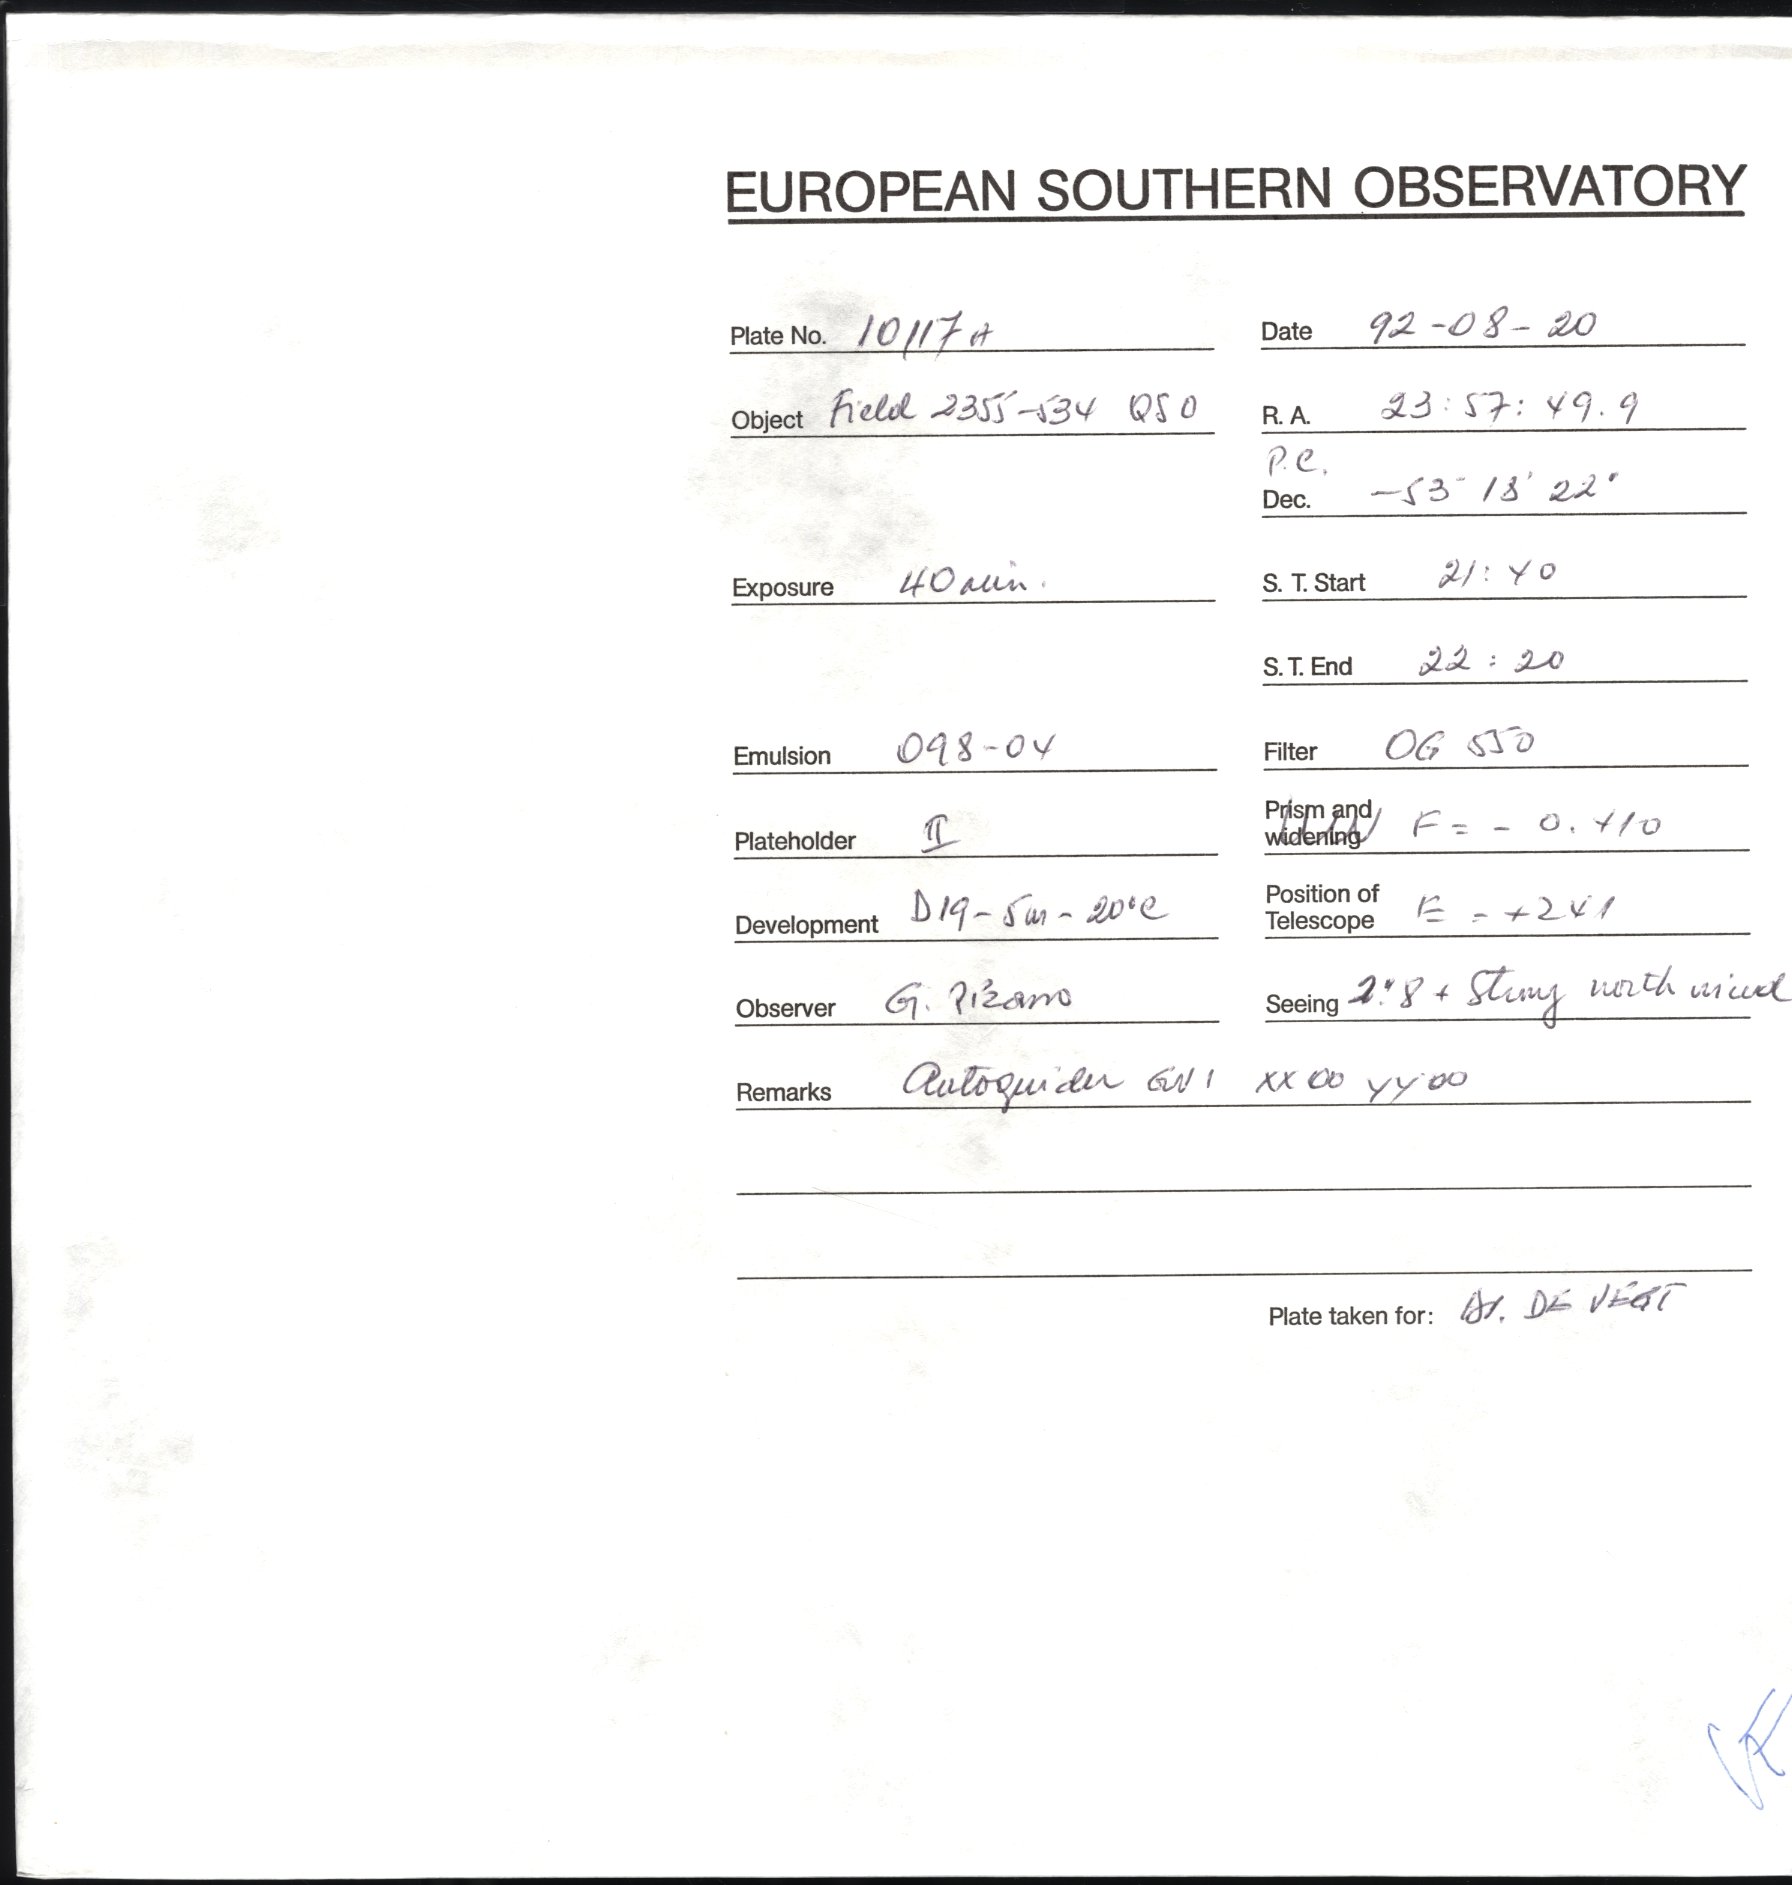 EUROPEAN SOUTHERN OBSERVATORY
Plate No. 10117A Date 92-08-20
Object Field 2355-534 QSO R. A. 23:57:49.9
P.C.
Dec. -53° 18' 22"
Exposure 40 min. S. T. Start 21:40
S. T. End 22:20
Emulsion 098-04 Filter OG 550
Plateholder II Prism and widening F = - 0.410
Development D19-5m-20°C Position of Telescope E = +241
Observer G. Pizarro Seeing 2".8 + Strong north wind
Remarks Autoguider GN1 XX00 YY00
Plate taken for: Dr. DE VEGT